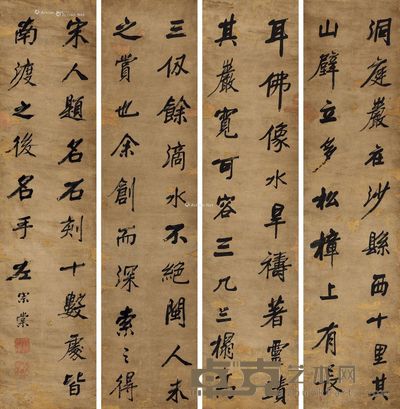 洞庭巖在沙縣西十里其
山壁立多松樟上有長
耳佛像水旱禱著靈蹟
其巖寬可容三几三榻其
三仞餘滴水不絕閩人未
之賞也余創而深索之得
宋人題名石刻十數處皆
南渡之後名手 左宗棠